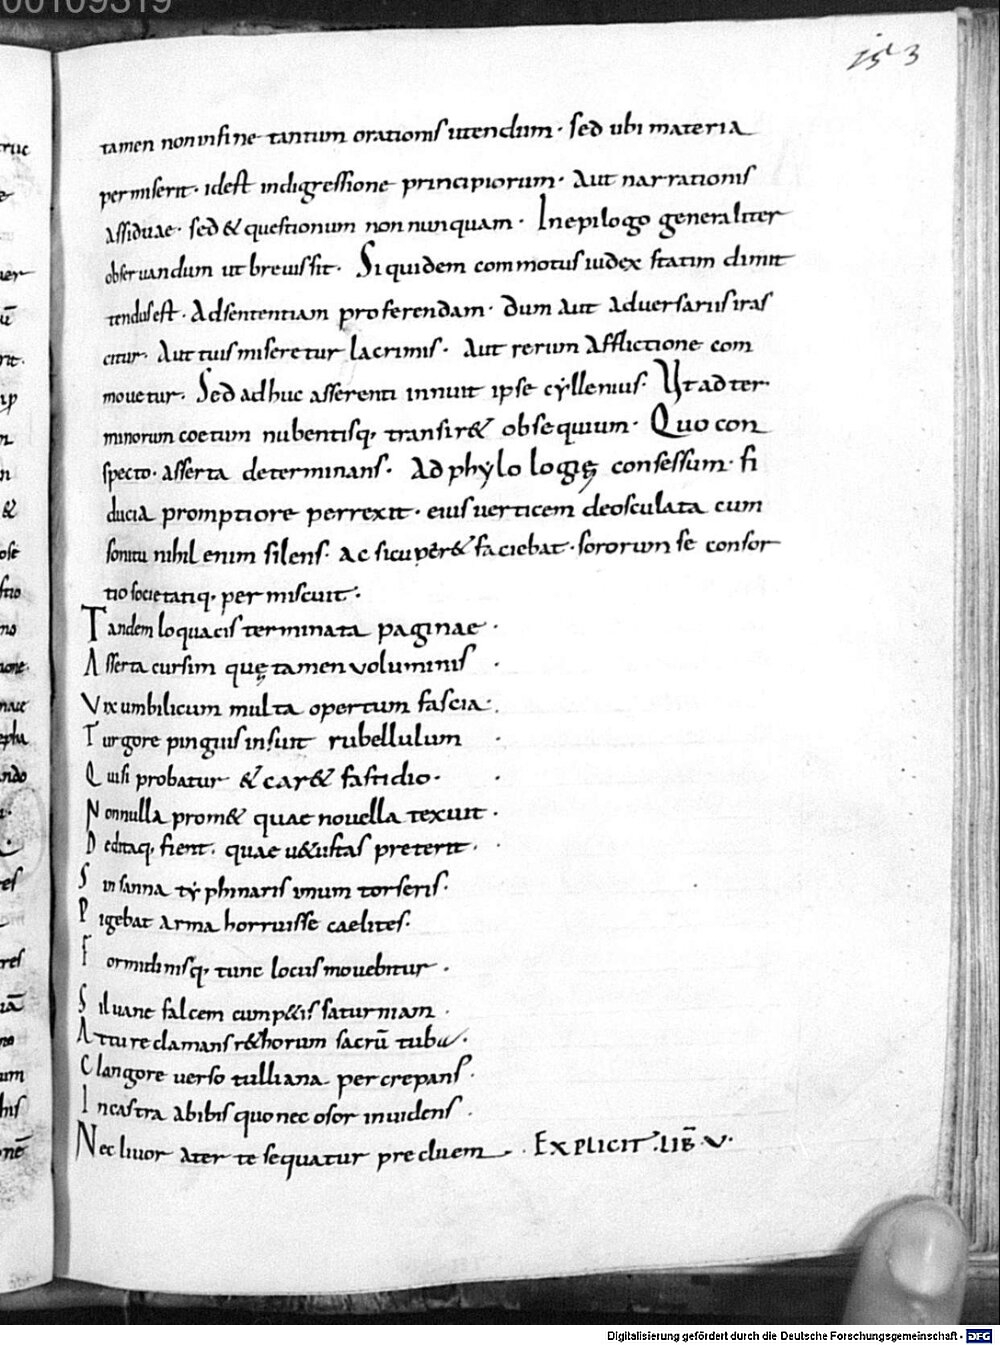 00109319
153
tamen non infine tantum orationis utendum · sed ubi materia
permiserit · idest indigressione principiorum · Aut narrationis
assiduae · sed & questionum non nunquam · In epilogo generaliter
observandum ut brevis sit · Si quidem commotus iudex statim dimit
tendus est · Ad sententiam proferendam · dum aut adversariis iras
citur · Aut tuis miseretur lacrimis · Aut rerum afflictione com
movetur · Sed adhuc asserenti innuit ipse cyllenius · Ut ad ter
minorum coetum nubentisq; transir& obsequium · Quo con
specto · asserta determinans · Ad phylologię consessum · fi
ducia promptiore perrexit · eius verticem deosculata cum
sonitu nihil enim silens · ac si cuper& faciebat · sororum se consor
tio societatiq; permiscuit :
Tandem loquacis terminata paginae ·
Asserta cursim quę tamen voluminis ·
Vix umbilicum multa opertum fascia ·
Turgore pinguis insuit rubellulum ·
Quisi probatur & car& fastidio ·
Nonnulla prom& quae novella texuit ·
Deditaq; fient · quae u&ustas preterit ·
Sin sanna typhinaris imum torseris ·
Pigebat arma horruisse caelites ·
Formidinisq; tunc locus movebitur ·
Silvane falcem cum p&is saturniam ·
Attu reclamans r&horum sacrū tuba ·
Clangore verso tulliana percrepans ·
In castra abibis quo nec osor invidens ·
Nec livor ater te sequatur precluem · EXPLICIT · LIB̄ V ·
Digitalisierung gefördert durch die Deutsche Forschungsgemeinschaft - DFG